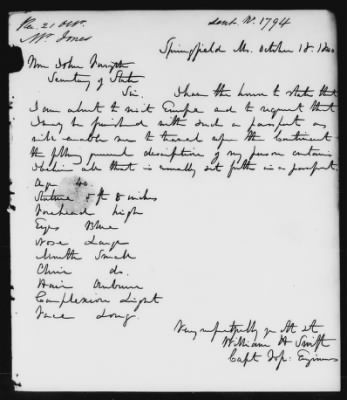 Rec. 21 Octr.
Mr Jones
sent N. 1794
Springfield Ms. October 18. 1840
Hon John Forsyth
Secretary of State
Sir. I have the honor to state that
I am about to visit Europe and to request that
I may be furnished with such a passport as
will enable me to travel upon the Continent
the following personal description of my person contains
I believe all that is usually set forth in a passport.
Age 40
Stature 5 ft 8 inches
Forehead high
Eyes Blue
Nose Large
Mouth Small
Chin do.
Hair Auburn
Complexion Light
Face Long.
Very respectfully yr Ob st
William H Swift
Capt Top: Engineers